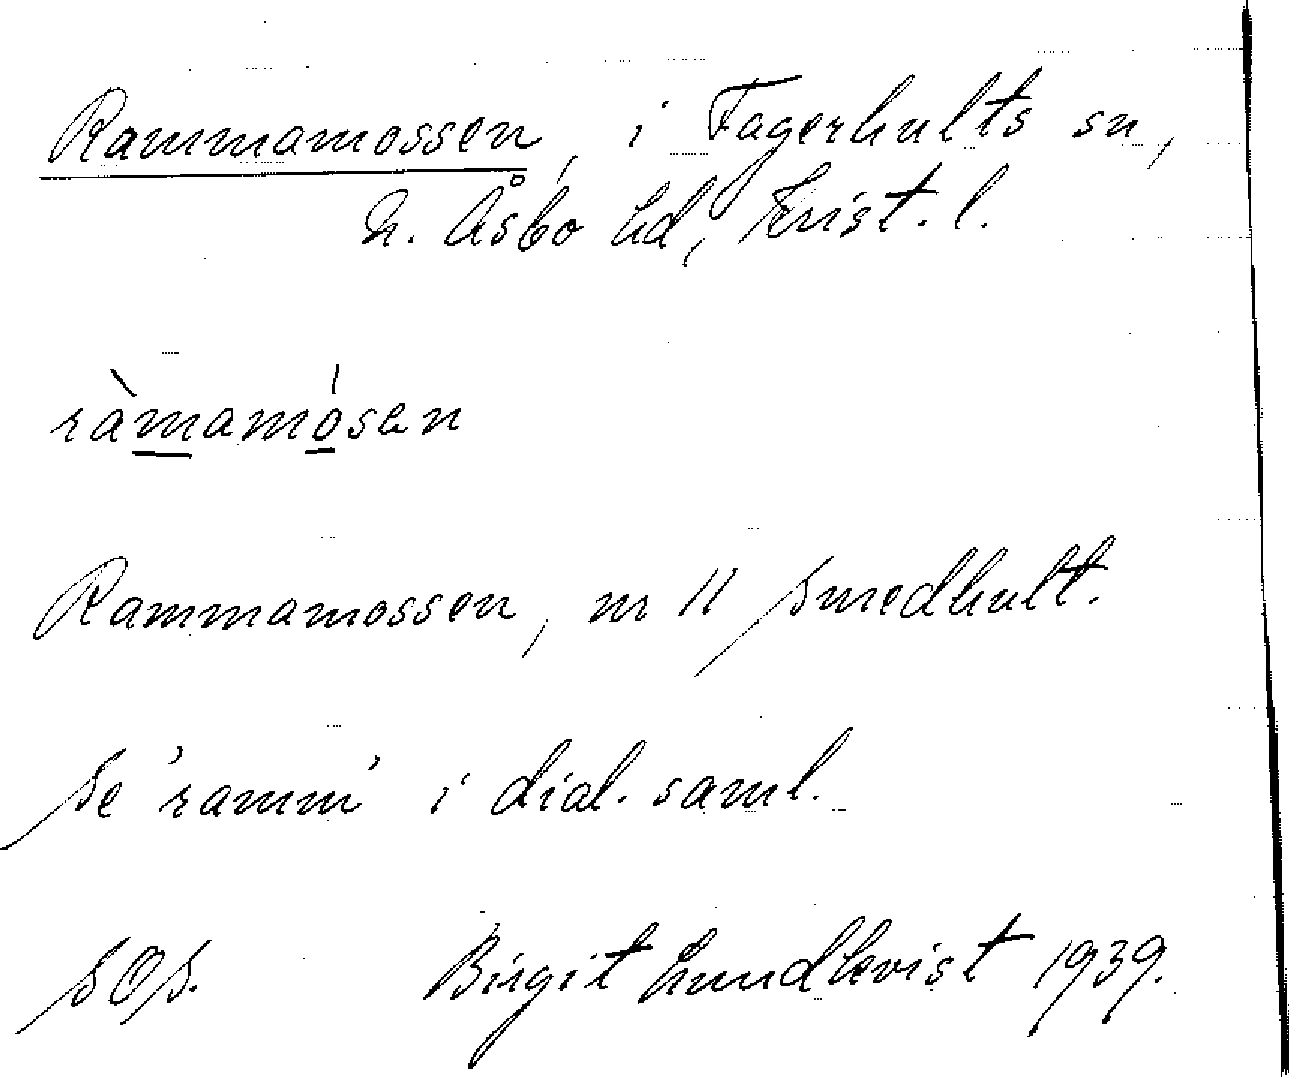 Rammamossen, i Fagerhults sn,
N. Åsbo hd, Krist. l.
ràmamósen
Rammamossen, nr 11 Smedhult.
Se 'ramm' i dial. saml.
SOS. Birgit Lundkvist 1939.